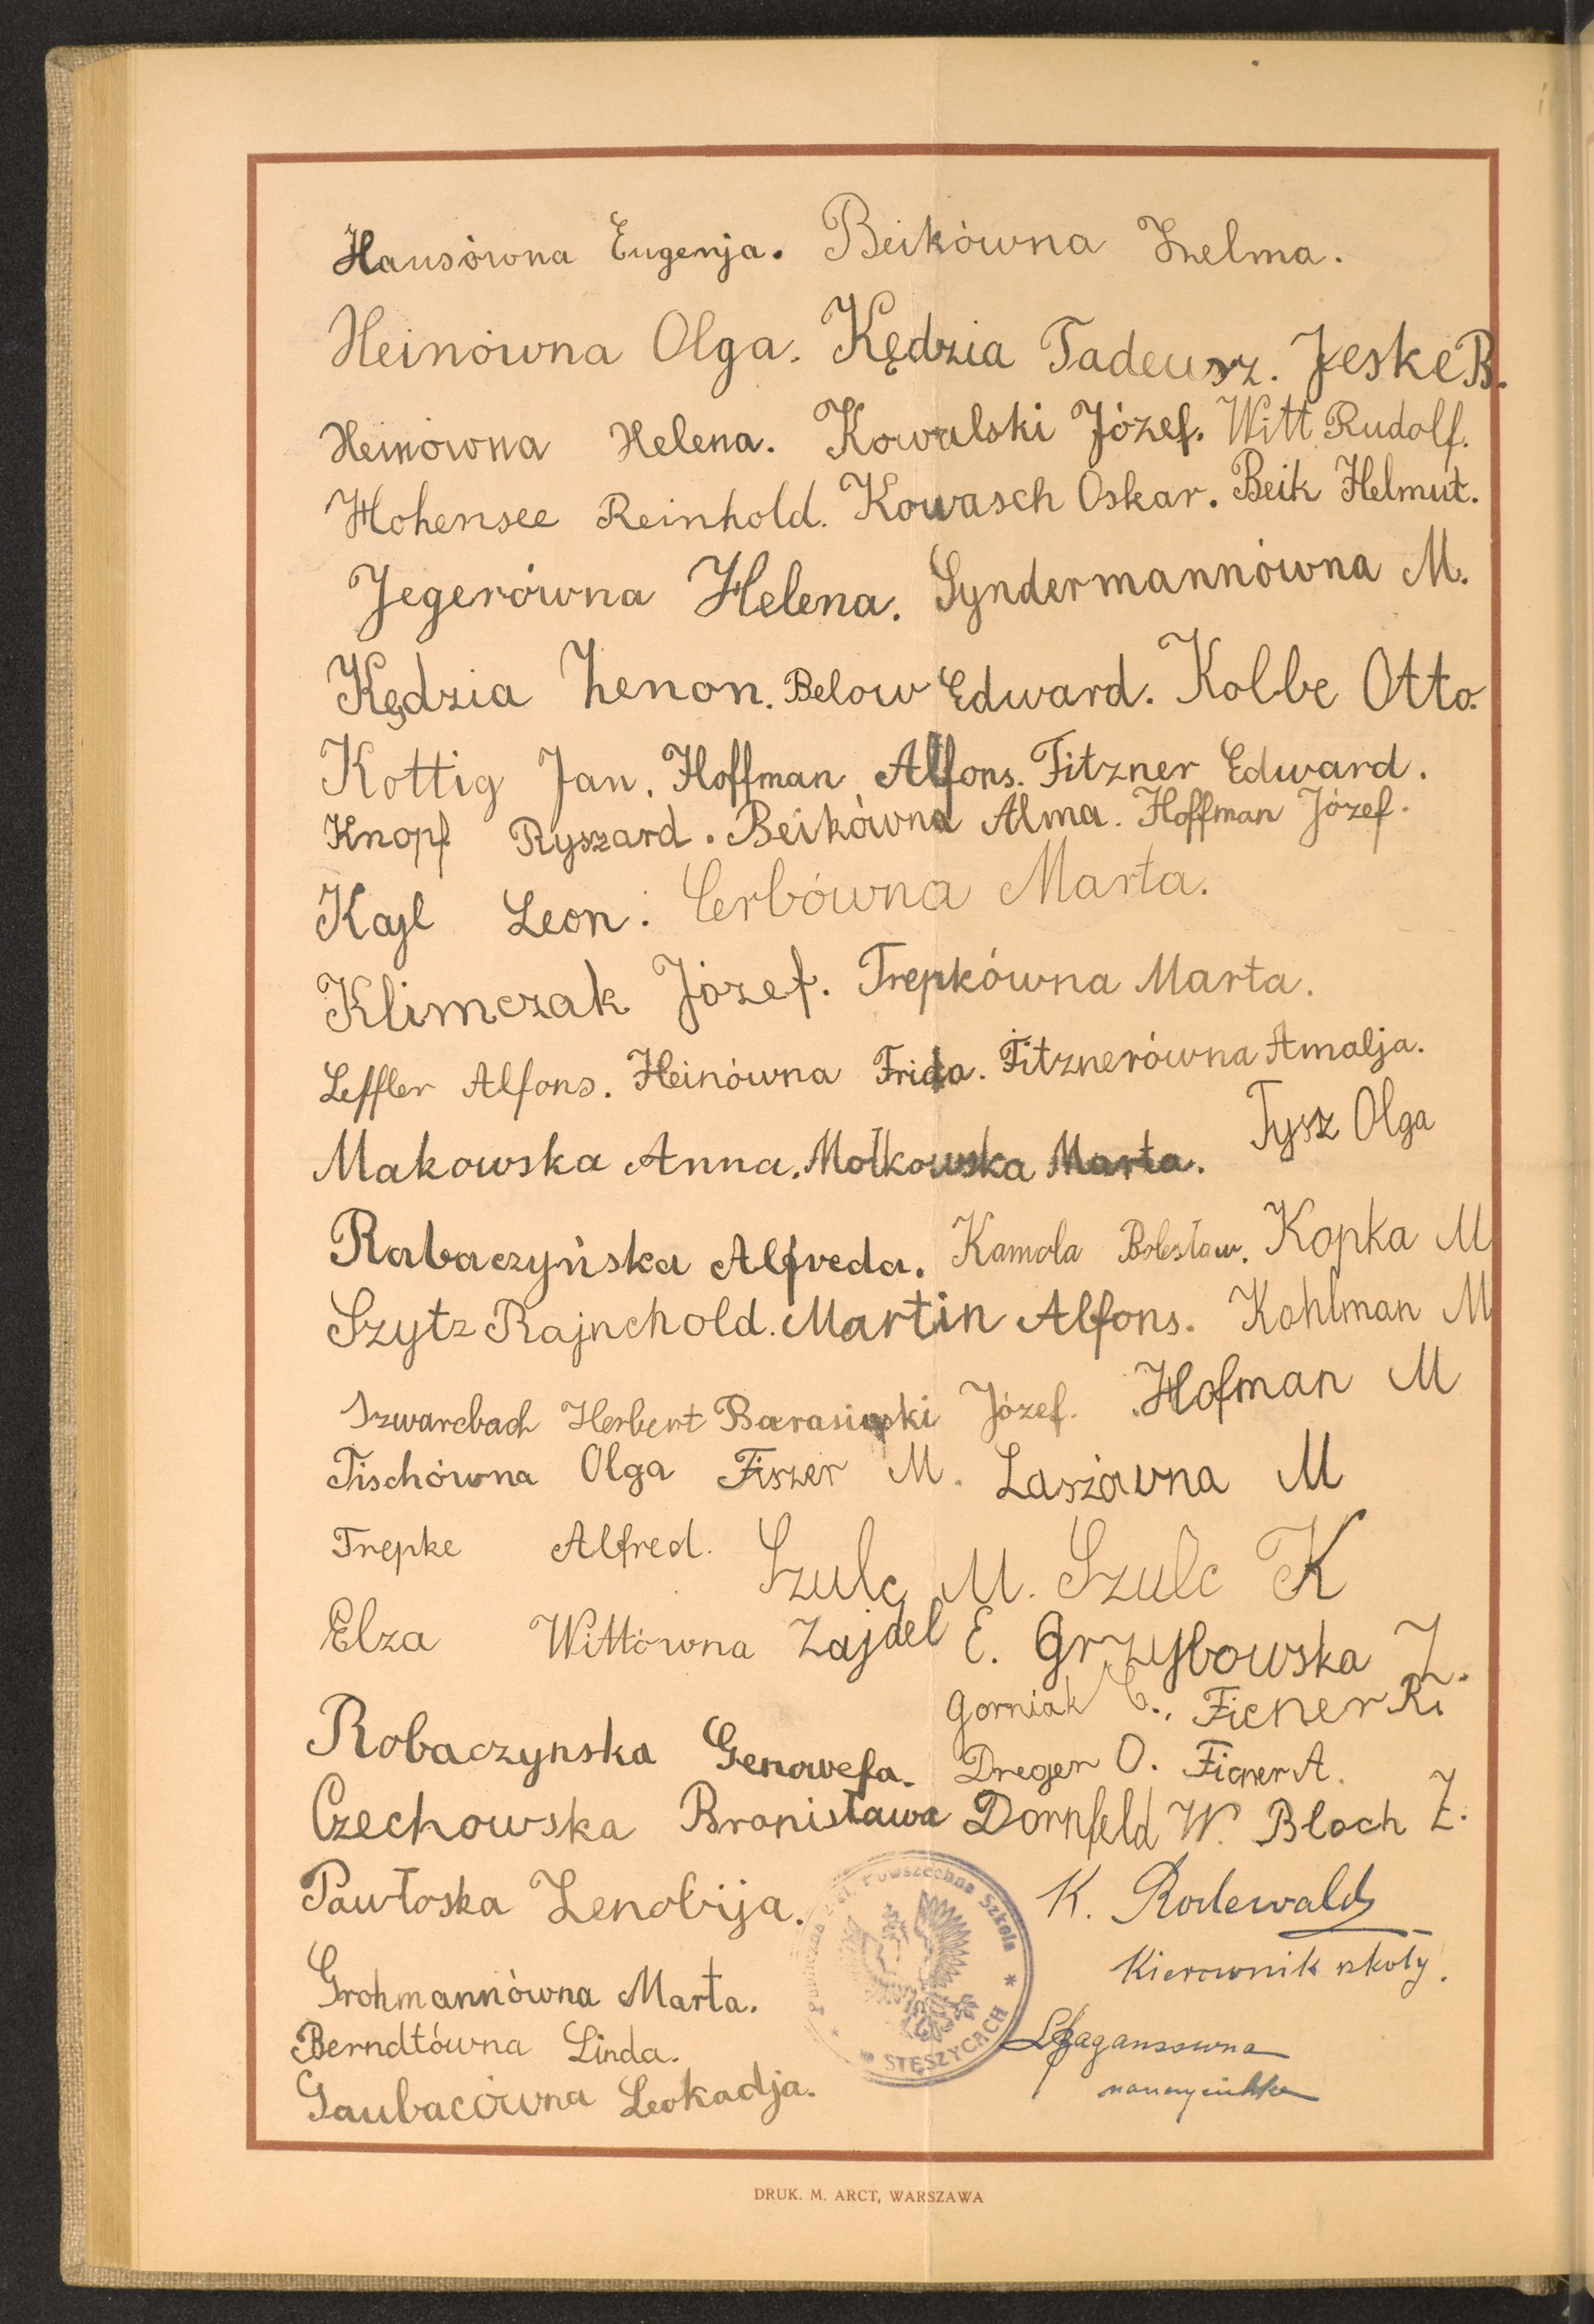 Hausówna Eugenja. Beikówna Zelma.
Heinówna Olga. Kędzia Tadeusz. Jeske B.
Heinówna Helena. Kowalski Józef. Witt Rudolf.
Hohensee Reinhold. Kowasch Oskar. Beik Helmut.
Jegerówna Helena. Syndermannówna M.
Kędzia Zenon. Below Edward. Kolbe Otto.
Kottig Jan. Hoffman Alfons. Fitzner Edward.
Knopf Ryszard. Beikówna Alma. Hoffman Józef.
Kajl Leon. Cerbówna Marta.
Klimczak Józef. Trepkówna Marta.
Leffler Alfons. Heinówna Frida. Fitznerówna Amalja.
Makowska Anna. Mołkowska Marta. Tysz Olga
Rabaczyńska Alfreda. Kamola Bolesław. Kopka M
Szytz Rajnchold. Martin Alfons. Kohlman M
Szwarcbach Herbert Barasiński Józef. Hofman M
Tischówna Olga Fiszer M. Laszówna M
Trepke Alfred. Szulc M. Szulc K
Elza Wittówna Zajdel E. Grzybowska Z.
Gorniak C., Ficner R.
Robaczynska Genowefa. Dreger O. Ficner A.
Czechowska Bronisława Dornfeld W. Bloch Z.
Pawłoska Zenobija. K. Rodewald
Kierownik szkoły.
Grohmannówna Marta.
Berndtówna Linda.
nauczycielka
Gaubacówna Leokadja.
Publiczna Powszechna Szkoła
w STĘSZYCACH
DRUK. M. ARCT, WARSZAWA